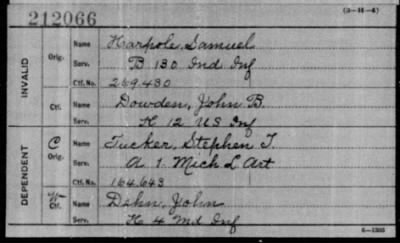 212066
(3-H-4)
INVALID
Orig.
Name Harpole, Samuel
Serv. B 130 Ind Inf
Ctf. No. 259.430
Ctf.
Name Dowden, John B.
Serv. K 12 US Inf
DEPENDENT
C
Orig.
Name Tucker, Stephen T.
Serv. A 1. Mich L Art
Ctf. No. 164.643
Ctf.
Name Dahn, John
Serv. K 4 Md Inf